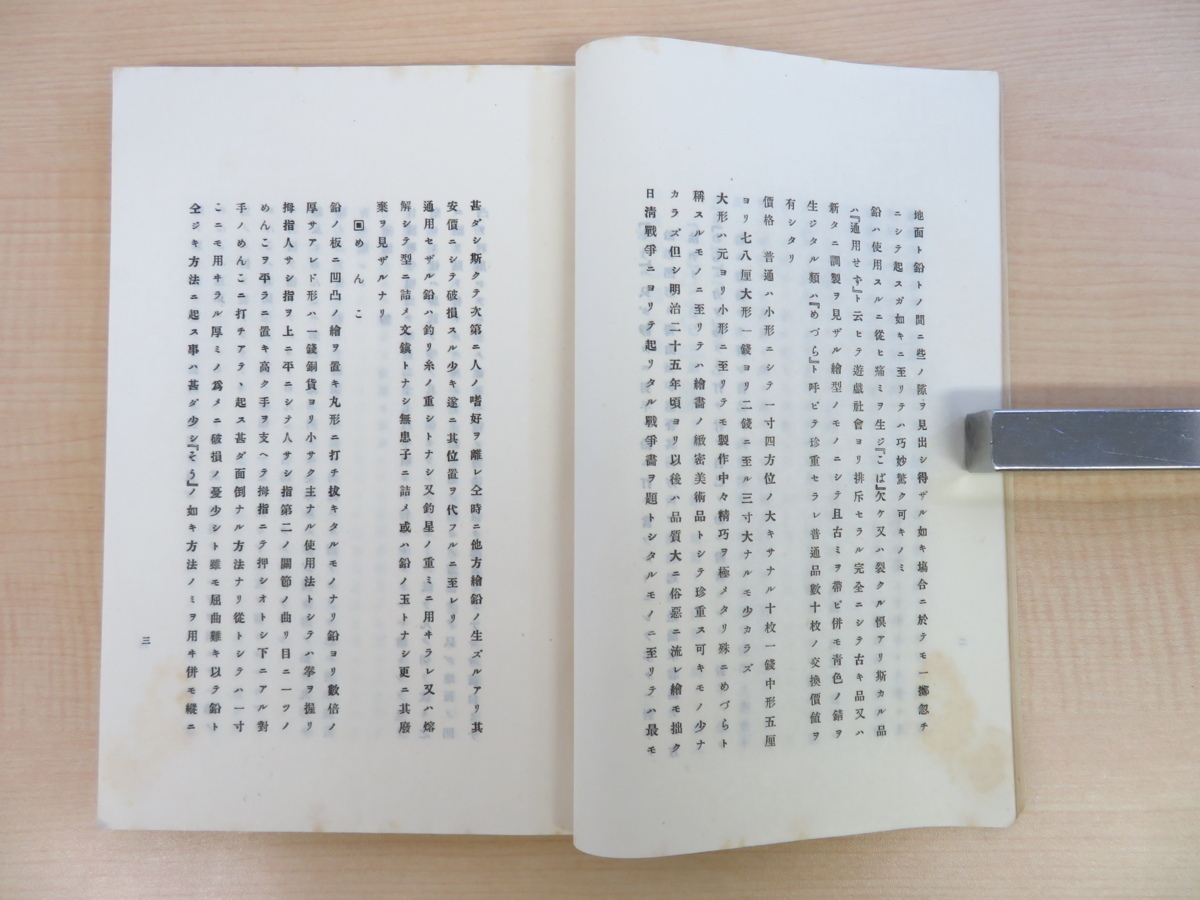 地面ト鉛トノ間ニ些ノ隙ヲ見出シ得ザル如キ塲合ニ於テモ一擲忽チ
ニシテ起スガ如キニ至リテハ巧妙驚ク可キノミ
鉛ハ使用スルニ從ヒ痛ミヲ生ジ『こば』欠ケ又ハ裂クル惧アリ斯カル品
ハ『通用せず』ト云ヒテ遊戯社會ヨリ排斥セラル完全ニシテ古キ品又ハ
新タニ調製ヲ見ザル繪型ノモノニシテ且古ミヲ帶ビ併モ靑色ノ錆ヲ
生ジタル類ハ『めづら』ト呼ビテ珍重セラレ普通品數十枚ノ交換價値ヲ
有シタリ
價格　普通ハ小形ニシテ一寸四方位ノ大キサナル十枚一錢中形五厘
ヨリ七八厘大形一錢ヨリ二錢ニ至ル三寸大ナルモ少カラズ
大形ハ元ヨリ小形ニ至リテモ製作中々精巧ヲ極メタリ殊ニめづらト
稱スルモノニ至リテハ繪畫ノ緻密美術品トシテ珍重ス可キモノ少ナ
カラズ但シ明治二十五年頃ヨリ以後ハ品質大ニ俗惡ニ流レ繪モ拙ク
日清戰爭ニヨリテ起リタル戰爭畫ヲ題トシタルモノニ至リテハ最モ
甚ダシ斯クテ次第ニ人ノ嗜好ヲ離レ仝時ニ他方繪鉛ノ生ズルアリ其
安價ニシテ破損スル少キ遂ニ其位置ヲ代フルニ至レリ
通用セザル鉛ハ釣リ糸ノ重シトナシ又釣星ノ重ミニ用ヰラレ又ハ熔
解シテ型ニ詰メ文鎭トナシ無患子ニ詰メ或ハ鉛ノ玉トナシ更ニ其廢
棄ヲ見ザルナリ
▣めんこ
鉛ノ板ニ凹凸ノ繪ヲ置キ丸形ニ打チ拔キタルモノナリ鉛ヨリ數倍ノ
厚サアレド形ハ一錢銅貨ヨリ小サク主ナル使用法トシテハ拳ヲ握リ
拇指人サシ指ヲ上ニ平ニシテ人サシ指第二ノ關節ノ曲リ目ニ一ツノ
めんこヲ平ラニ置キ高ク手ヲ支ヘテ拇指ニテ押シオトシ下ニアル對
手ノめんこニ打チアテヽ起ス甚ダ面倒ナル方法ナリ從トシテハ一寸
こニモ用ヰラル厚ミノ爲メニ破損ノ憂少シト雖モ屈曲難キ以テ鉛ト
仝ジキ方法ニ起ス事ハ甚ダ少シ『そう』ノ如キ方法ノミヲ用ヰ併モ縱ニ
三